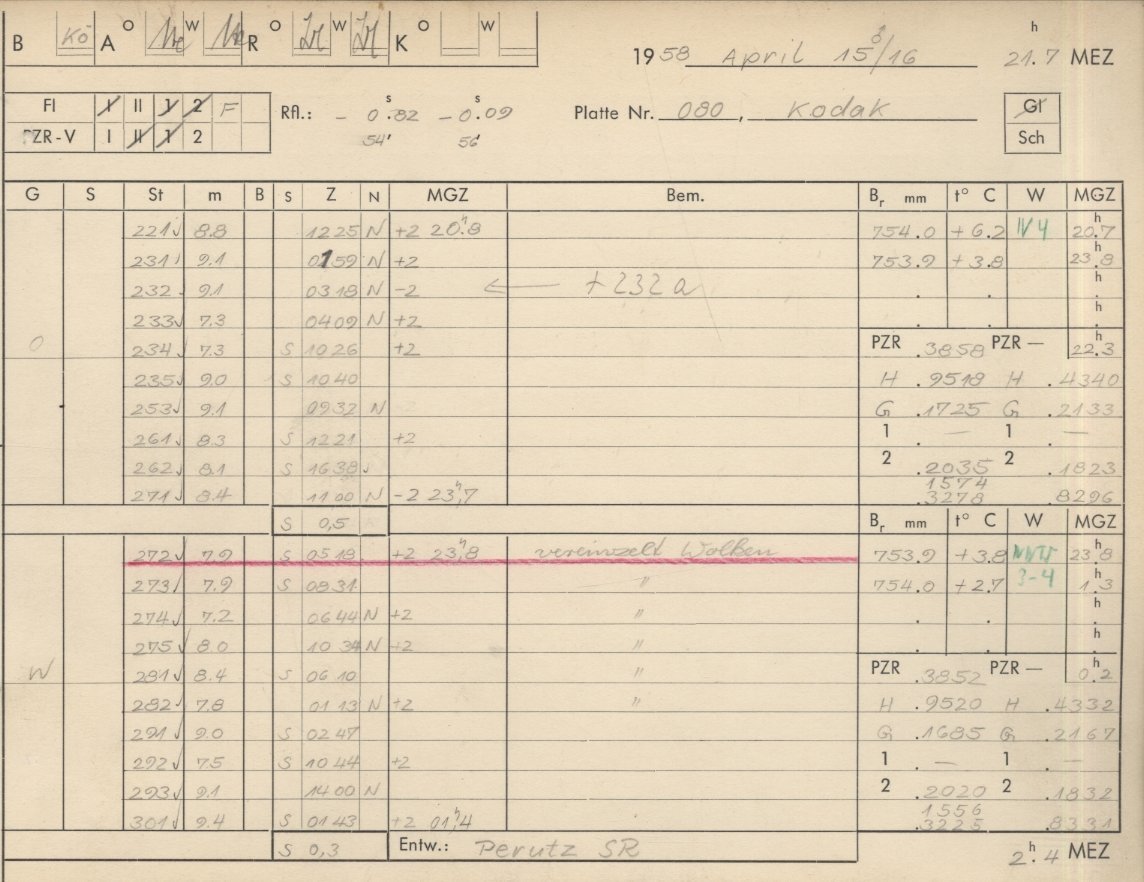 B Kö A O W R O W K O W
1958 April 15/16 21.7 h MEZ
Fl I II 1 2 F Rfl.: - 0.82 s - 0.09 s Platte Nr. 080, Kodak Gl
PZR-V I II 1 2 54' 56' Sch
G S St m B S Z N MGZ Bem. Br mm t° C W MGZ
221 8.8 12 25 N +2 20.8 h 754.0 +6.2 IV 4 20.7 h
231 9.1 01 59 N +2 753.9 +3.8 23.8 h
232 9.1 03 18 N -2 ← +232a . . . h
233 7.3 04 09 N +2 . . . h
O 234 7.3 S 10 26 +2 PZR .3858 PZR — 22.3 h
235 9.0 S 10 40 H .9518 H .4340
253 9.1 09 32 N G .1725 G .2133
261 8.3 S 12 21 +2 1 . — 1 . —
262 8.1 S 16 38 2 .2035 2 .1823
1574
271 8.4 11 00 N -2 23.7 h .3278 .8296
S 0,5 Br mm t° C W MGZ
272 7.9 S 05 18 +2 23.8 h vereinzelt Wolken 753.9 +3.8 23.8 h
273 7.9 S 08 31 " 754.0 +2.7 3-4 1.3 h
274 7.2 06 44 N +2 " . . . h
275 8.0 10 34 N +2 " . . . h
W 281 8.4 S 06 10 " PZR .3852 PZR — 0.2 h
282 7.8 01 13 N +2 " H .9520 H .4332
291 9.0 S 02 47 G .1685 G .2167
292 7.5 S 10 44 +2 1 . — 1 . —
293 9.1 14 00 N 2 .2020 2 .1832
1556
301 9.4 S 01 43 +2 01.4 h .3225 .8331
S 0,3 Entw.: Perutz SR 2.4 h MEZ